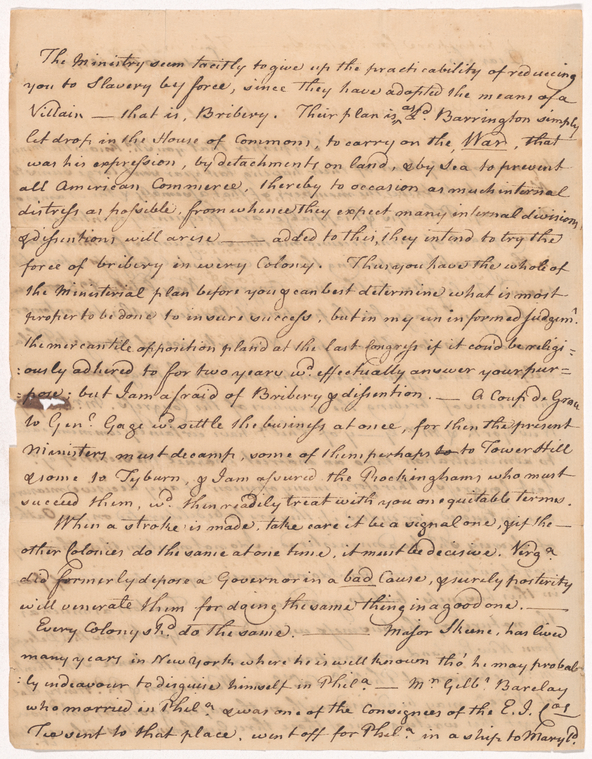 The Ministry seem tacitly to give up the practicability of reduceing
you to Slavery by force, since they have adopted the means of a
Villain — that is, Bribery. Their plan is, as Ld. Barrington simply
let drop in the House of Commons, to carry on the War, that
was his expression, by detachments on land, & by Sea to prevent
all American Commerce, thereby to occasion as much internal
distress as possible, from whence they expect many internal divisions
& dissentions will arise — added to this, they intend to try the
force of bribery in every Colony. Thus you have the whole of
the Ministerial plan before you & can best determine what is most
proper to be done to insure success, but in my un informed Judgemt.
the mercantile opposition pland at the last Congress if it coud be religi=
:ously adhered to for two years wd. effectually answer your pur=
:pose; but I am afraid of Bribery & dissention. — A Coup de Grace
to Genl. Gage wd. settle the business at once, for then the present
Ministers must decamp, some of them perhaps to to Tower Hill
& some to Tyburn, & I am assured the Rockinghams who must
succeed them, wd. then readily treat with you on equitable terms.
When a stroke is made, take care it be a signal one, & if the —
other Colonies do the same at one time, it must be decisive. Virga.
did formerly depose a Governor in a bad Cause, & surely posterity
will venerate them for doing the same thing in a good one. —
Every Colony shd. do the same. — Major Skene, has lived
many years in New York where he is well known tho' he may probab=
:ly endeavour to disguise himself in Phila. — Mr. Gilbt. Barclay
who married in Phila. & was one of the Consignees of the E. I. Cos
Tea sent to that place, went off for Phila. in a ship to Maryld.